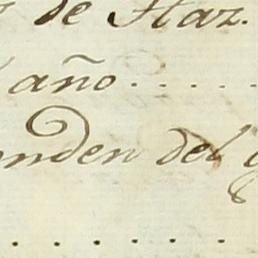 de Haz.
año . . . . .
nden del
. . . . . . .